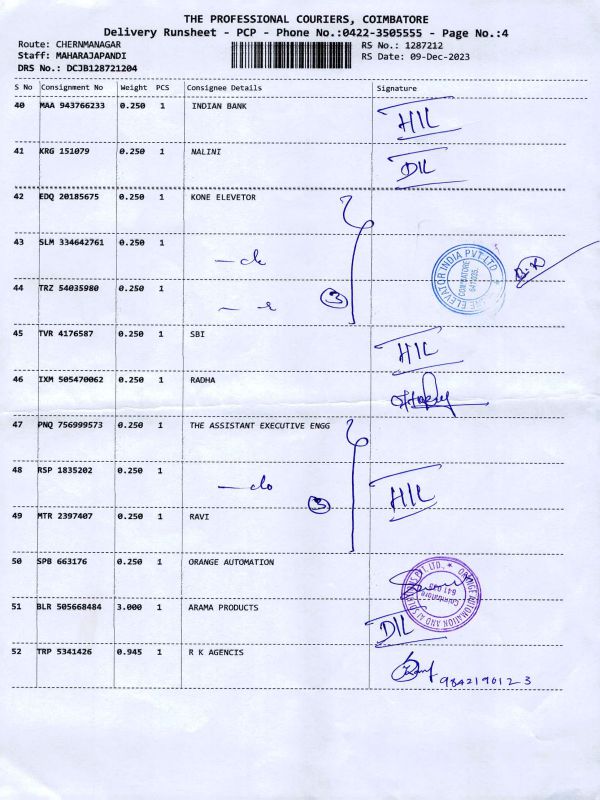 THE PROFESSIONAL COURIERS, COIMBATORE
Delivery Runsheet - PCP - Phone No.:0422-3505555 - Page No.:4
Route: CHERNMANAGAR RS No.: 1287212
Staff: MAHARAJAPANDI RS Date: 09-Dec-2023
DRS No.: DCJB128721204
S No Consignment No Weight PCS Consignee Details Signature
40 MAA 943766233 0.250 1 INDIAN BANK H1L
41 KRG 151079 0.250 1 NALINI D1L
42 EDQ 20185675 0.250 1 KONE ELEVETOR
43 SLM 334642761 0.250 1
44 TRZ 54035980 0.250 1 3
45 TVR 4176587 0.250 1 SBI H1L
46 IXM 505470062 0.250 1 RADHA
47 PNQ 756999573 0.250 1 THE ASSISTANT EXECUTIVE ENGG
48 RSP 1835202 0.250 1 — do H1L
49 MTR 2397407 0.250 1 RAVI 3
50 SPB 663176 0.250 1 ORANGE AUTOMATION
51 BLR 505668484 3.000 1 ARAMA PRODUCTS D1L
52 TRP 5341426 0.945 1 R K AGENCIS
9842190123
KONE ELEVATOR INDIA PVT LTD
COIMBATORE
641035.
ORANGE AUTOMATION AND AI SOLUTIONS PVT. LTD.,
Coimbatore
641 035